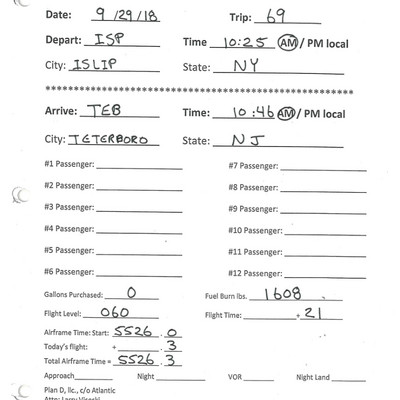 Date: 9/29/18 Trip: 69
Depart: ISP Time 10:25 AM / PM local
City: ISLIP State: NY
****************************************
Arrive: TEB Time: 10:46 AM / PM local
City: TETERBORO State: NJ
#1 Passenger: #7 Passenger:
#2 Passenger: #8 Passenger:
#3 Passenger: #9 Passenger:
#4 Passenger: #10 Passenger:
#5 Passenger: #11 Passenger:
#6 Passenger: #12 Passenger:
Gallons Purchased: 0 Fuel Burn lbs. 1608
Flight Level: 060 Flight Time: + 21
Airframe Time: Start: 5526.0
Today's flight: + .3
Total Airframe Time = 5526.3
Approach Night VOR Night Land
Plan D, llc., c/o Atlantic
Attn: Larry Visoski